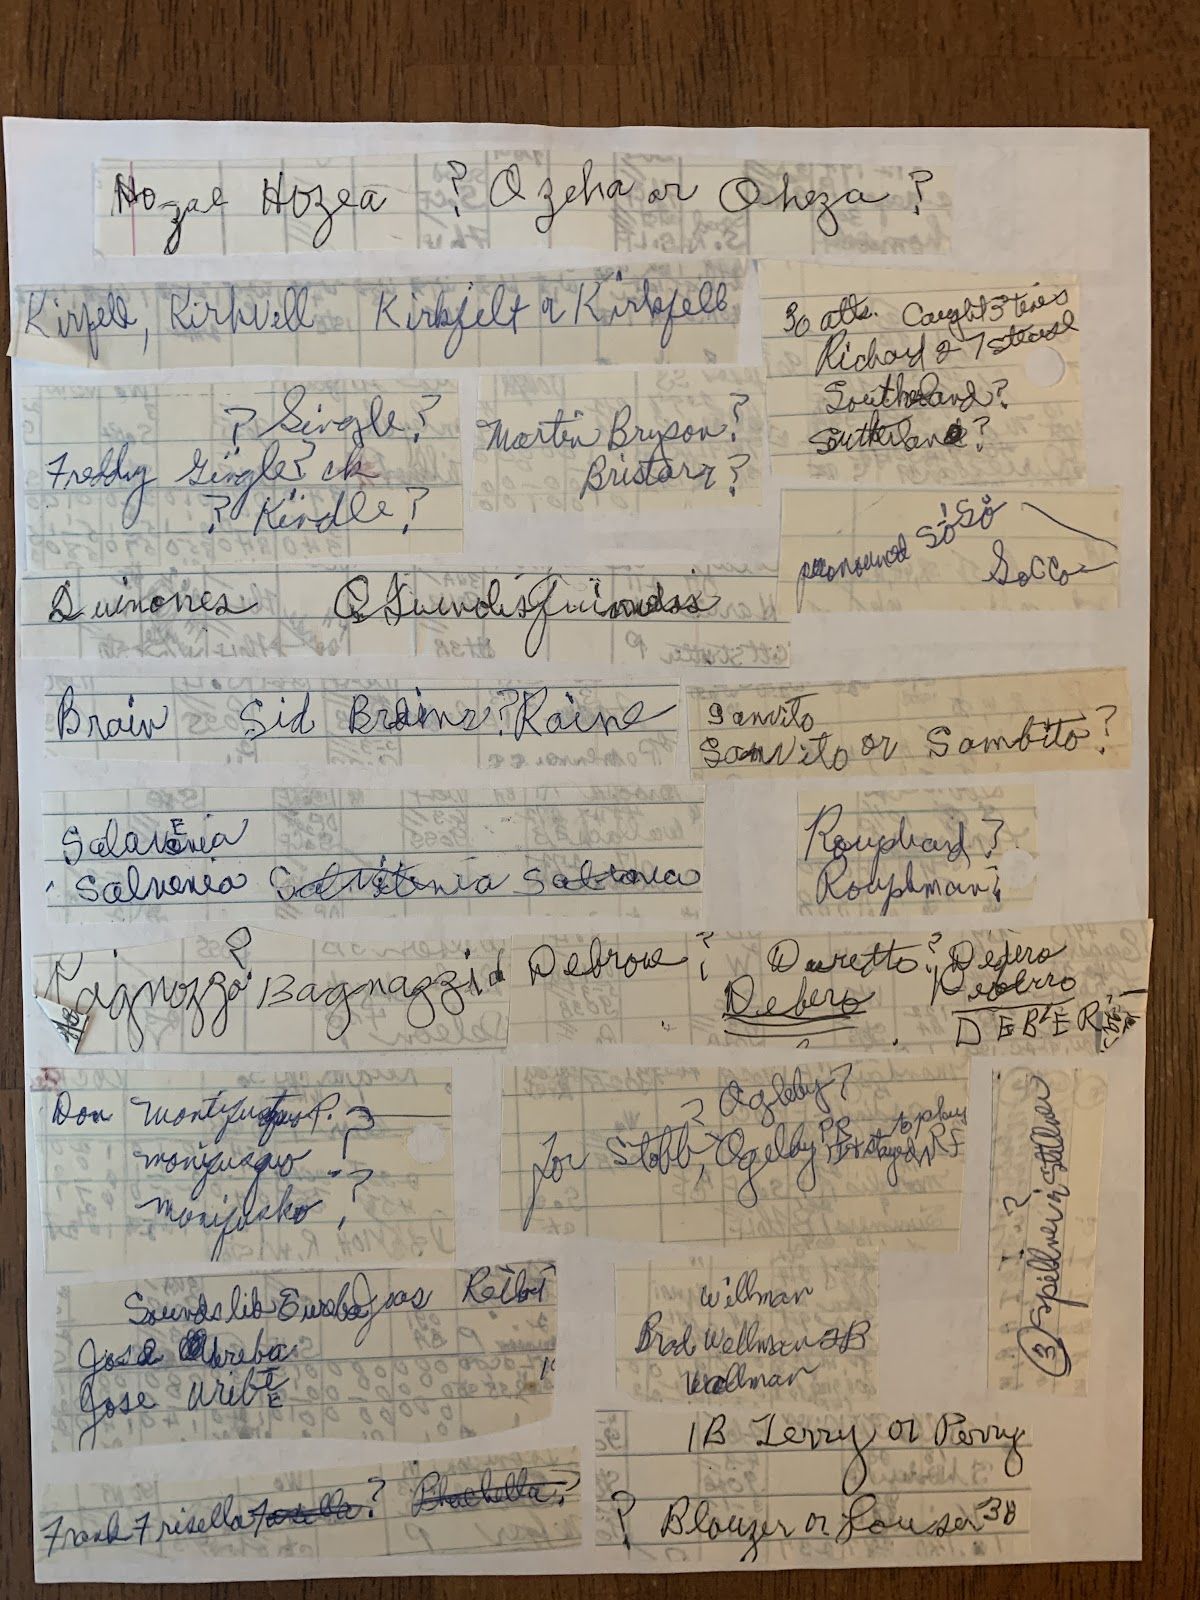 Hozae Hozea ? Ozeha or Oheza ?
Kirfell, Kirkvell Kirkfelt or Kirkfell
30 atts. Caught 3 ties
Richard 2 7 steal
Southerland?
Southerland?
? Gingle?
Freddy Gingle? ck
? Kindle?
Martin Bryson?
Bristorz?
pronounced So So
SoCCo
Quinones
Brain Sid Brains? Raine
Sanvito
Sanvito or Sambito?
Salavenia
E
Salvenia
Rouphard?
Rouphman?
?
Bagnazzia
Debrow? Duretto? Defero
Debero Deberro
DEBER
Don P.?
?
Monjusko?
? Ogleby?
for Stobb, Ogelby
(3) Spillner or Stillner
?
Sounds lib
Jose
Jose Uribe
E
Willman
Brad Wellman 2B
Wellman
1B Terry or Perry
Frank Frisella ? ?
? Blouzer or Louser 3B